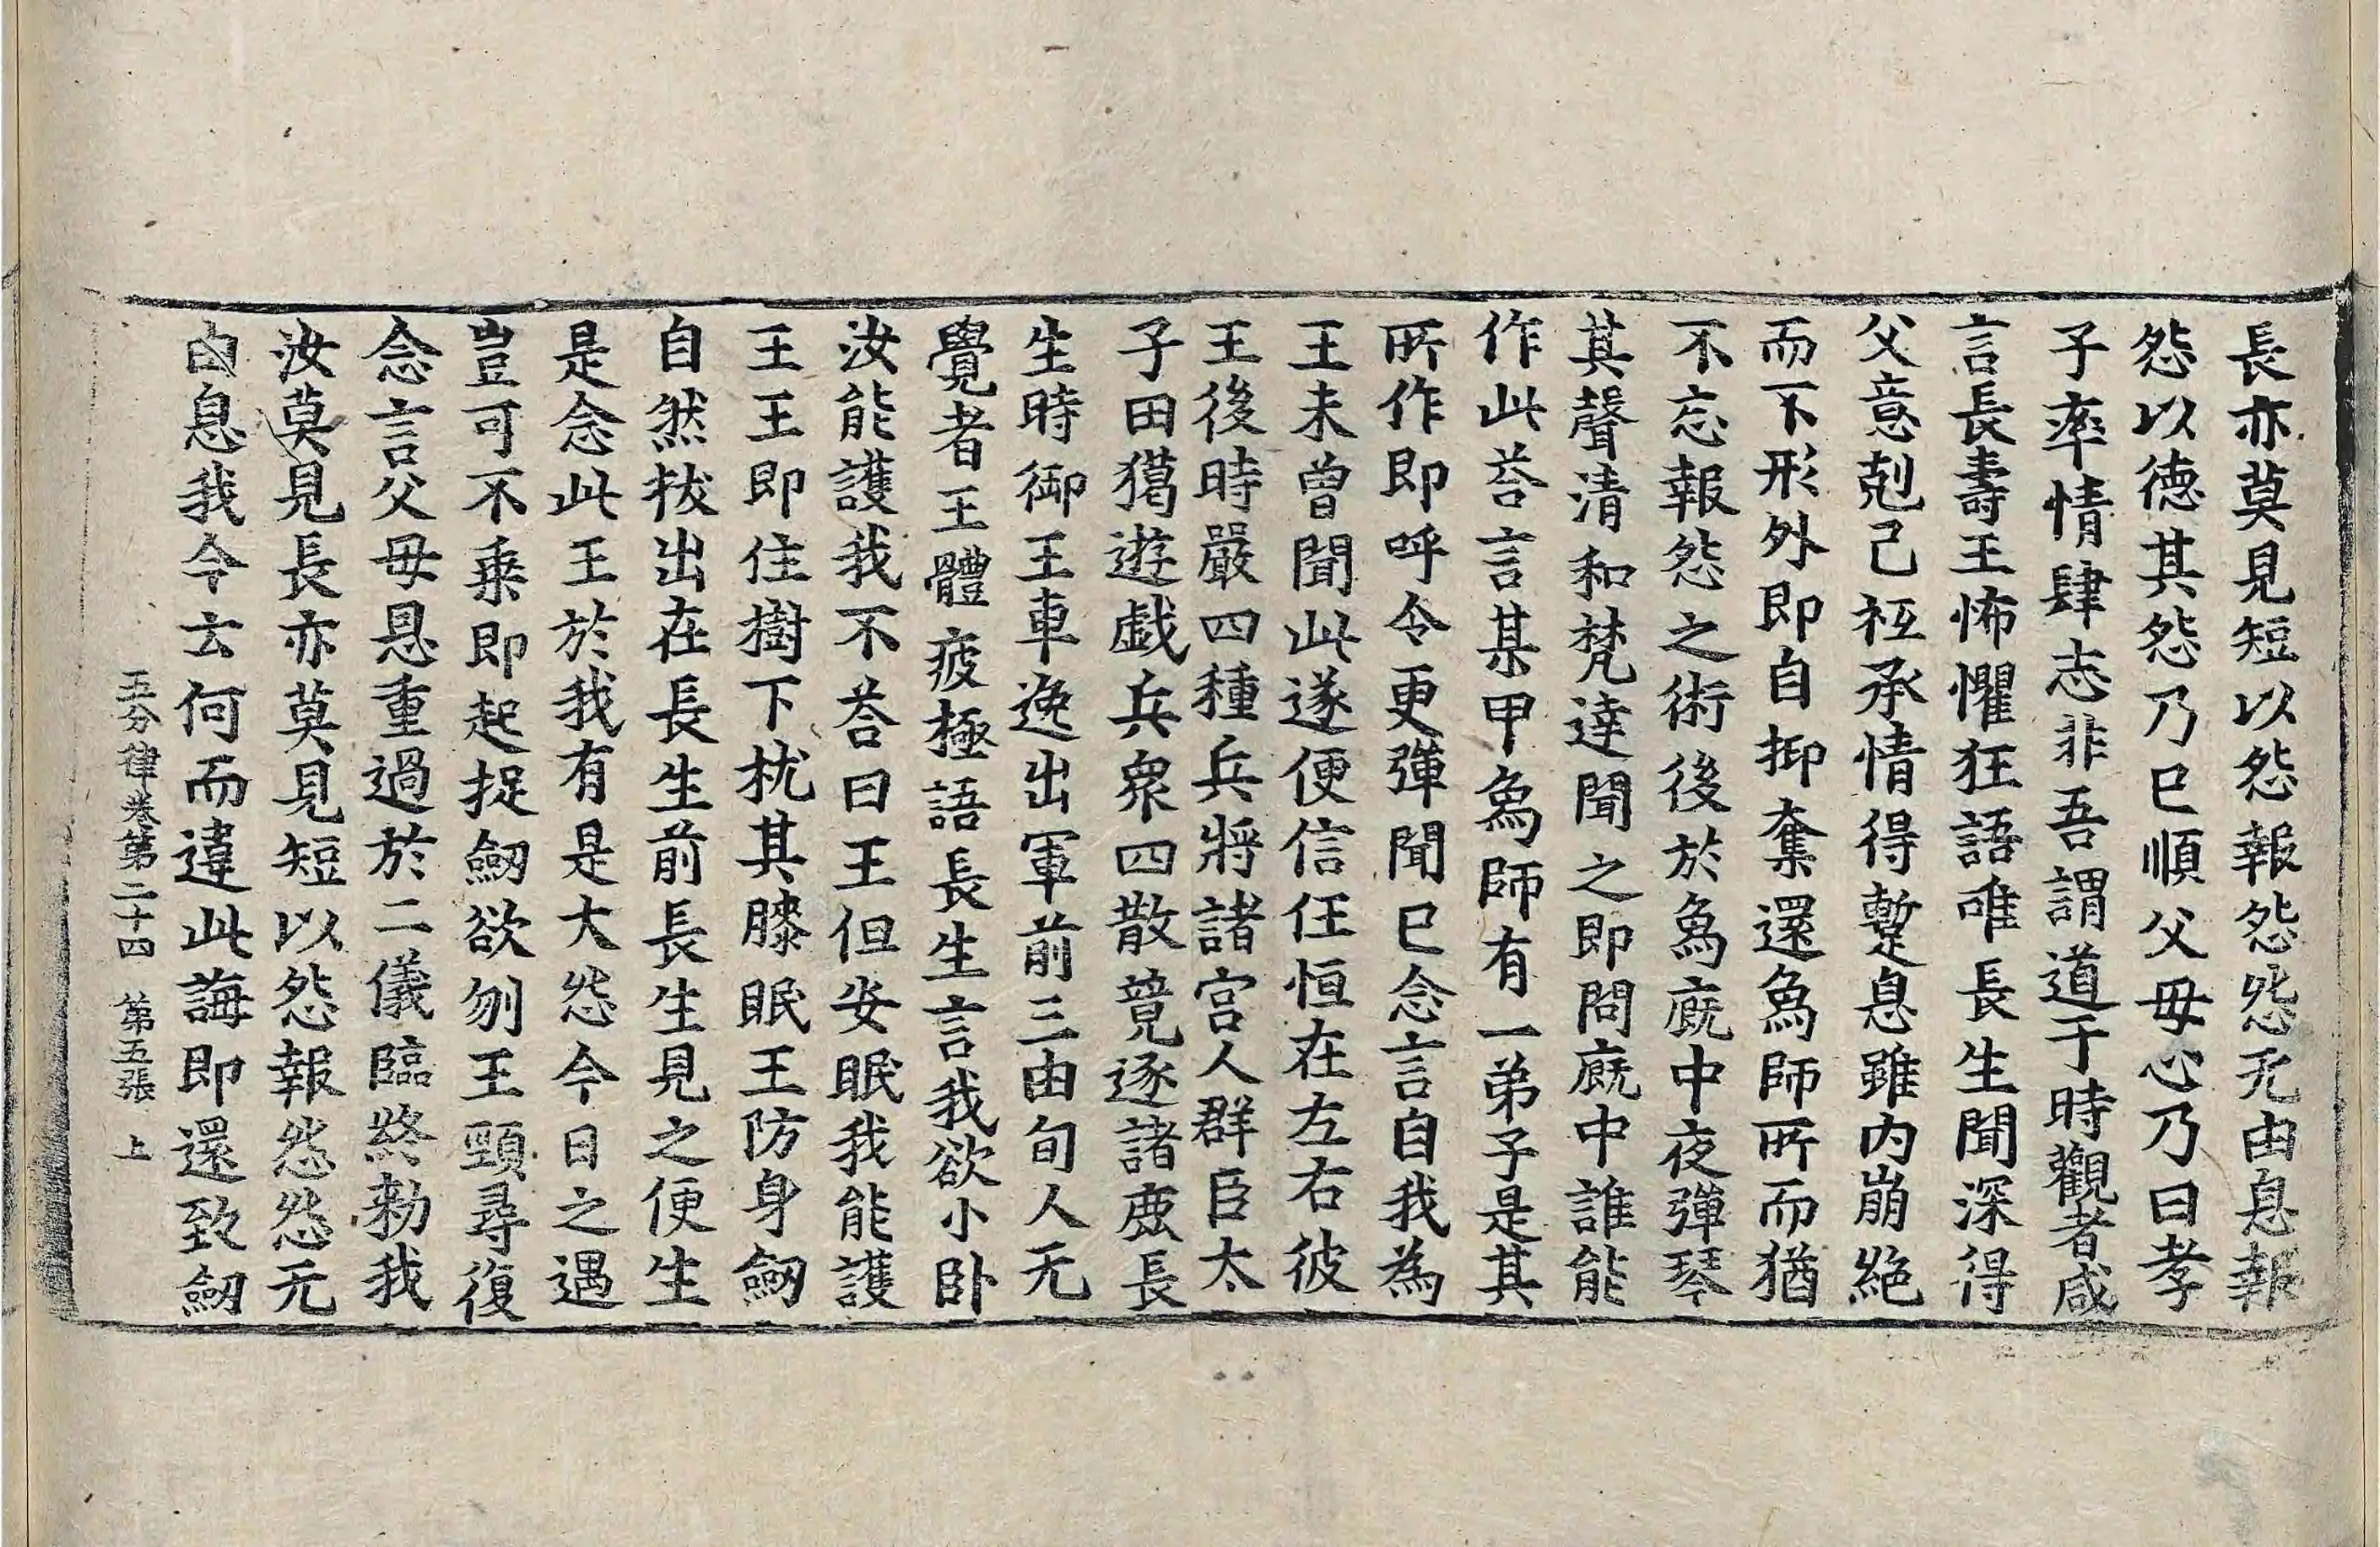 長亦莫見短以怨報怨怨无由息報
怨以德其怨乃已順父母心乃曰孝
子率情肆志非吾謂道于時觀者咸
言長壽王怖懼狂語唯長生聞深得
父意剋己祇承情得蹔息雖内崩絕
而不形外即自抑奪還爲師所而猶
不忘報怨之術後於爲廐中夜彈琴
其聲清和梵達聞之即問廐中誰能
作此荅言某甲爲師有一弟子是其
所作即呼令更彈聞已念言自我為
王未曾聞此遂便信任恒在左右彼
王後時嚴四種兵將諸宮人群臣太
子田獦遊戯兵衆四散競逐諸鹿長
生時御王車逸出軍前三由旬人无
覺者王體疲極語長生言我欲小卧
汝能護我不荅曰王但安眠我能護
王王即住樹下枕其膝眠王防身劒
自然拔出在長生前長生見之便生
是念此王於我有是大怨今日之遇
豈可不乗即起捉劒欲刎王頸尋復
念言父母恩重過於二儀臨終勑我
汝莫見長亦莫見短以怨報怨怨无
由息我今云何而違此誨即還致劒
五分律卷第二十四 第五張 上